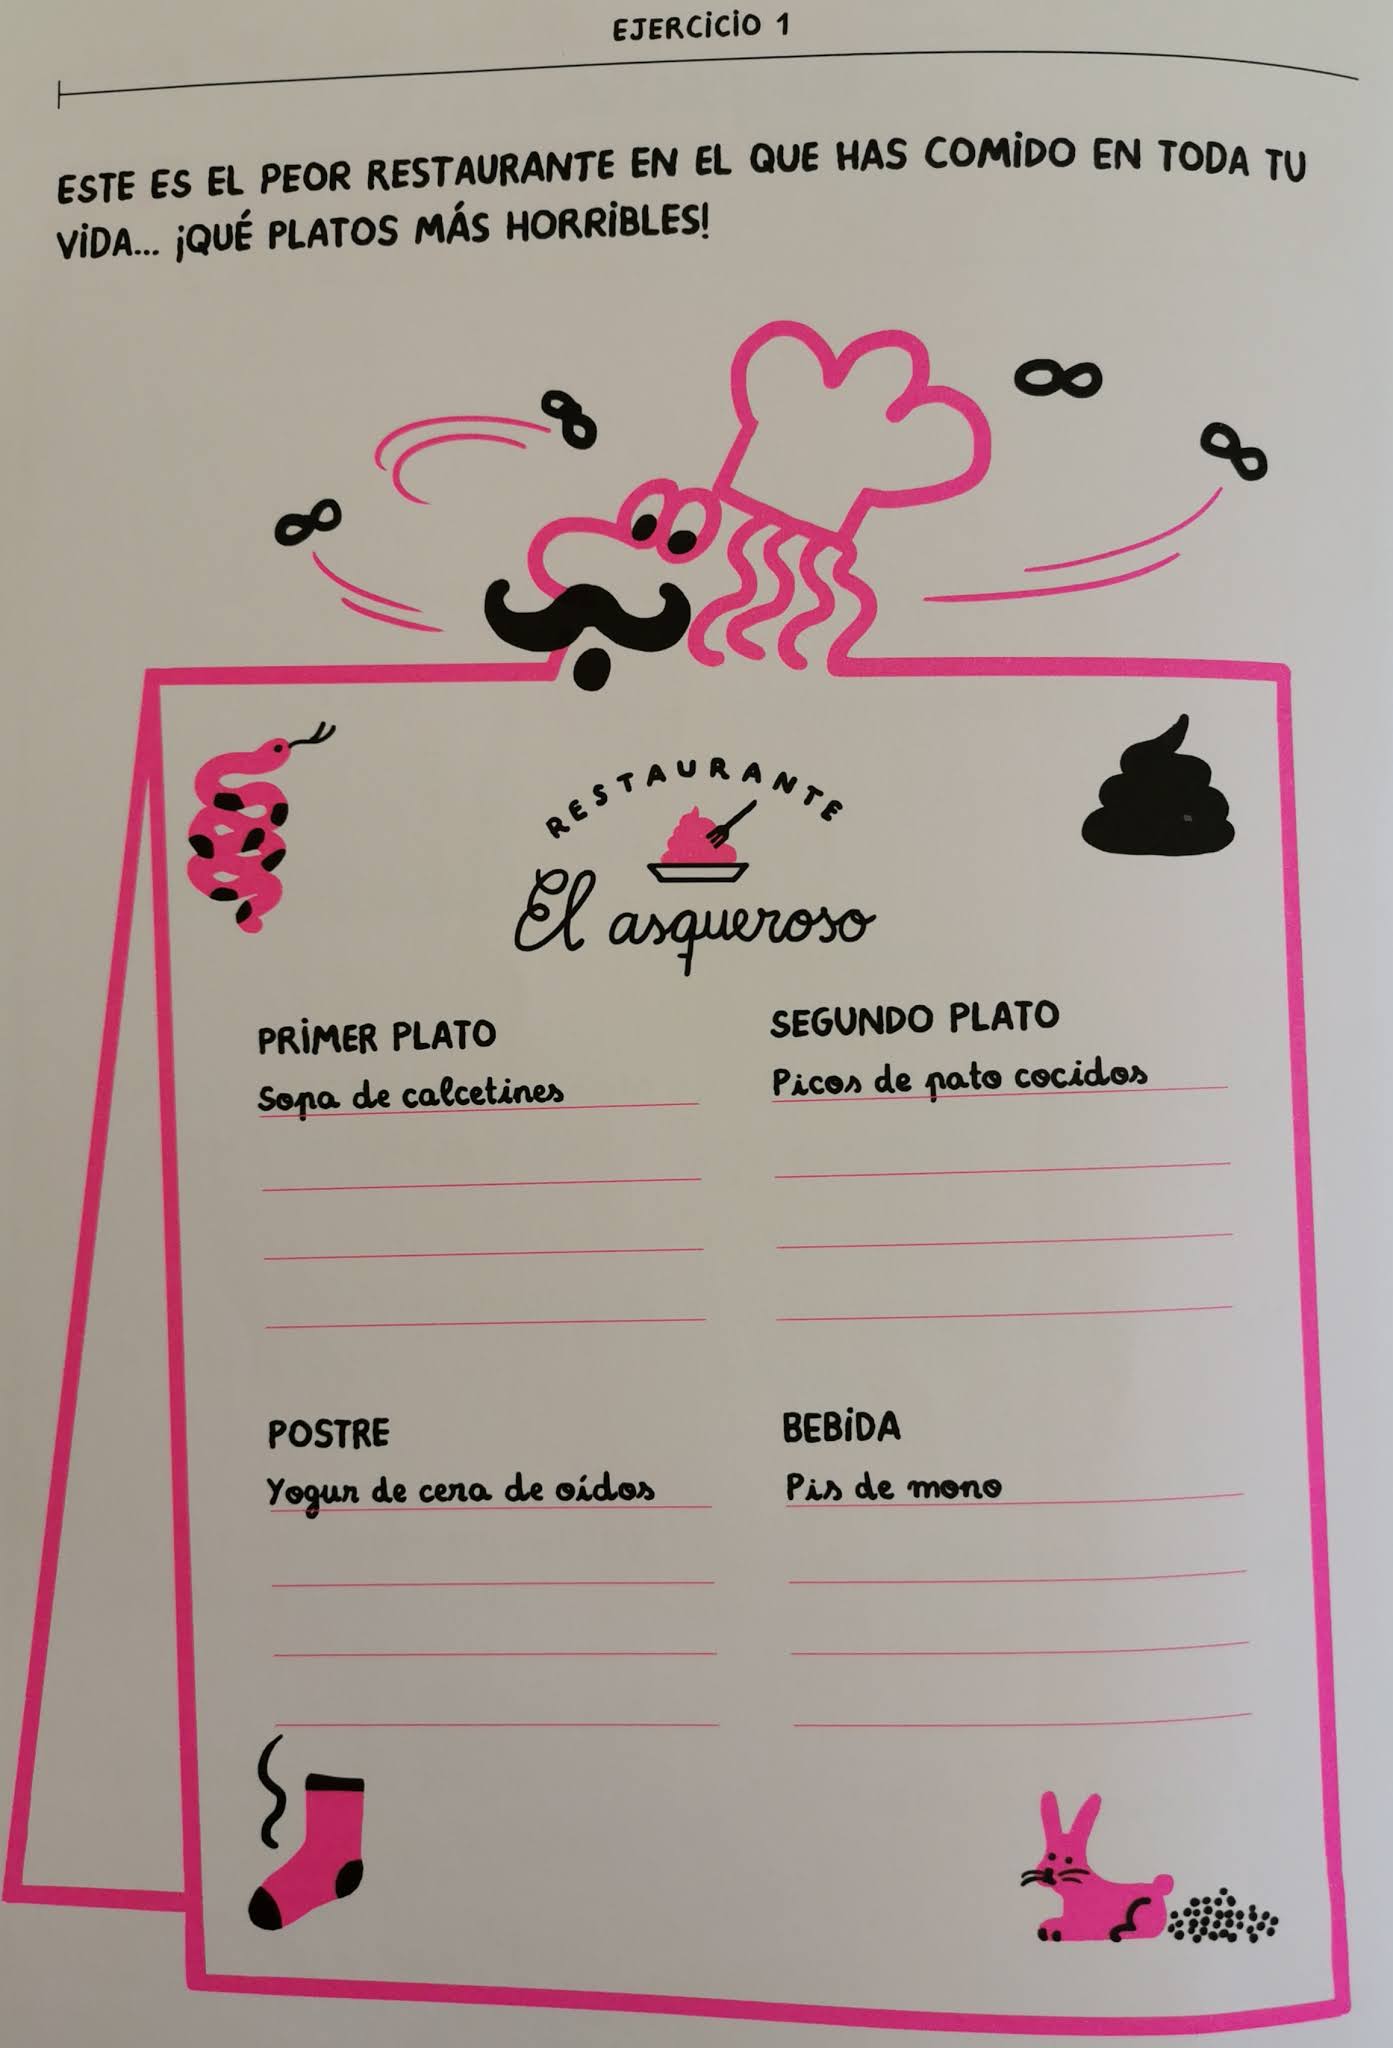 EJERCiCiO 1
ESTE ES EL PEOR RESTAURANTE EN EL QUE HAS COMiDO EN TODA TU
ViDA... ¡QUÉ PLATOS MÁS HORRiBLES!
RESTAURANTE
El asqueroso
PRiMER PLATO
Sopa de calcetines
SEGUNDO PLATO
Picos de pato cocidos
POSTRE
Yogur de cera de oídos
BEBiDA
Pis de mono